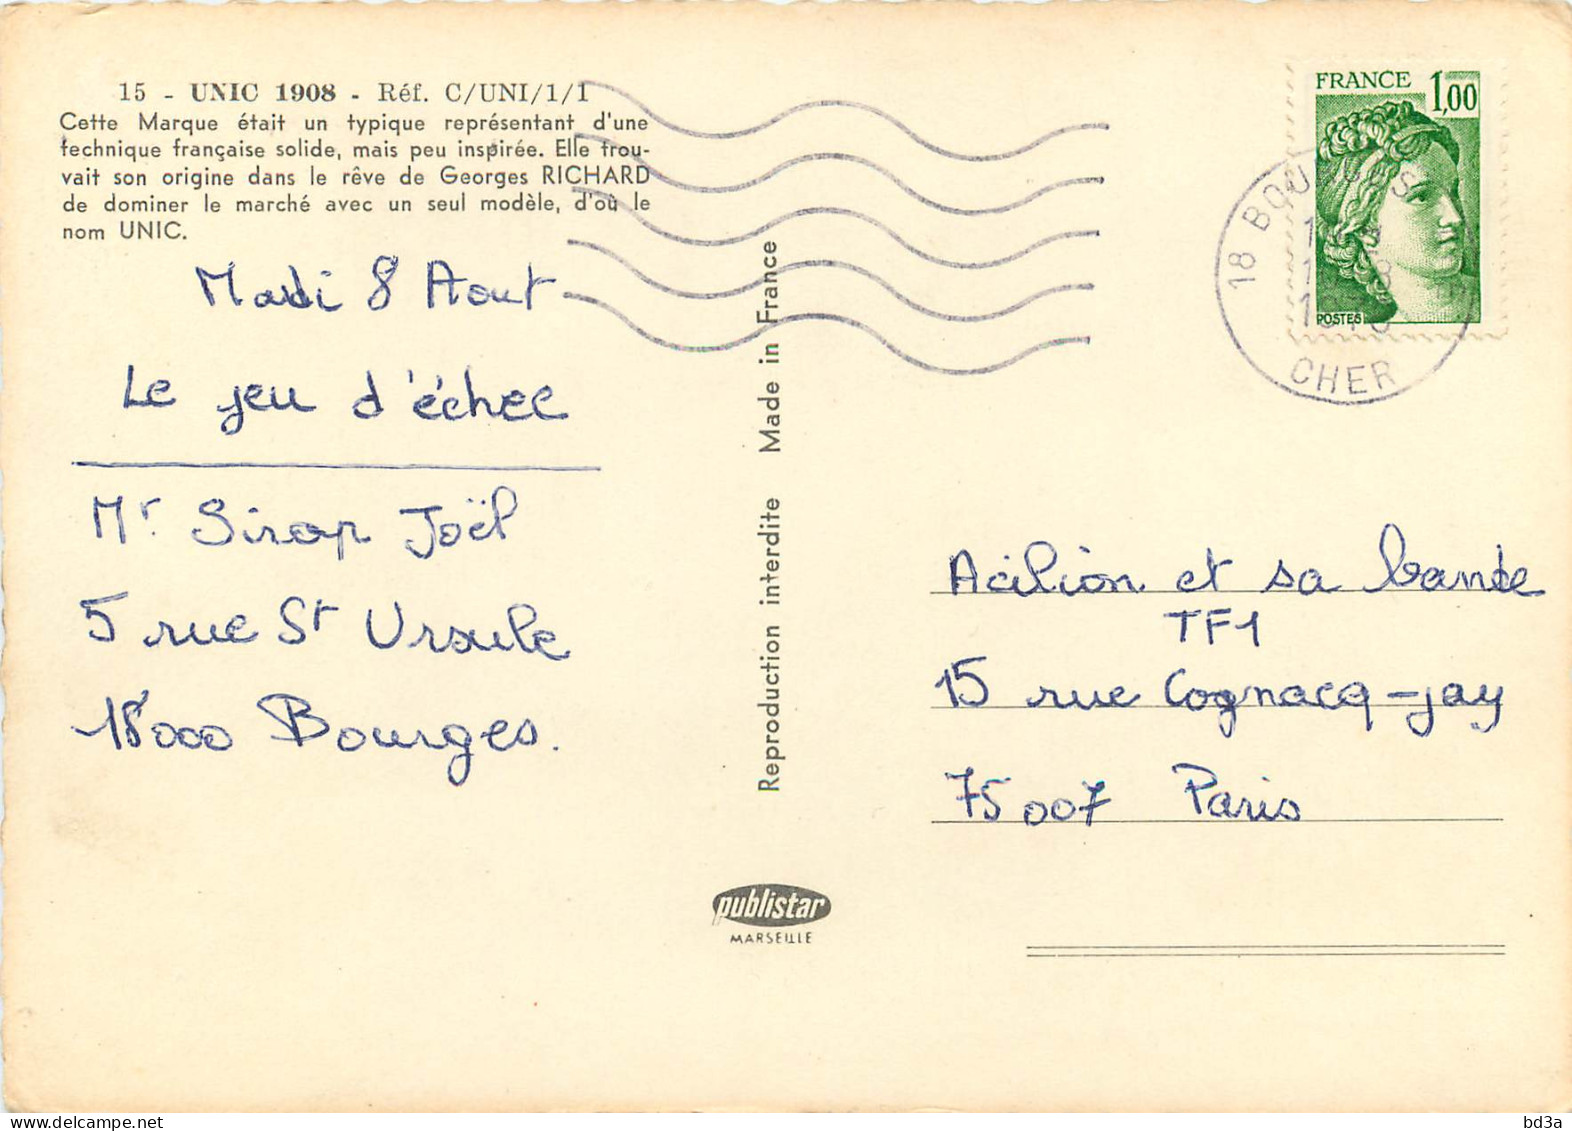 15 - UNIC 1908 - Réf. C/UNI/1/1
Cette Marque était un typique représentant d'une
technique française solide, mais peu inspirée. Elle trou-
vait son origine dans le rêve de Georges RICHARD
de dominer le marché avec un seul modèle, d'où le
nom UNIC.
Mardi 8 Aout
Le jeu d'échec
Mr Sirop Joël
5 rue St Ursule
18000 Bourges.
Reproduction interdite Made in France
publistar
MARSEILLE
FRANCE 1,00
POSTES
18 BOURGES
CHER
Acilion et sa bande
TF1
15 rue Cognacq-jay
75007 Paris
delcampe.net
bd3a